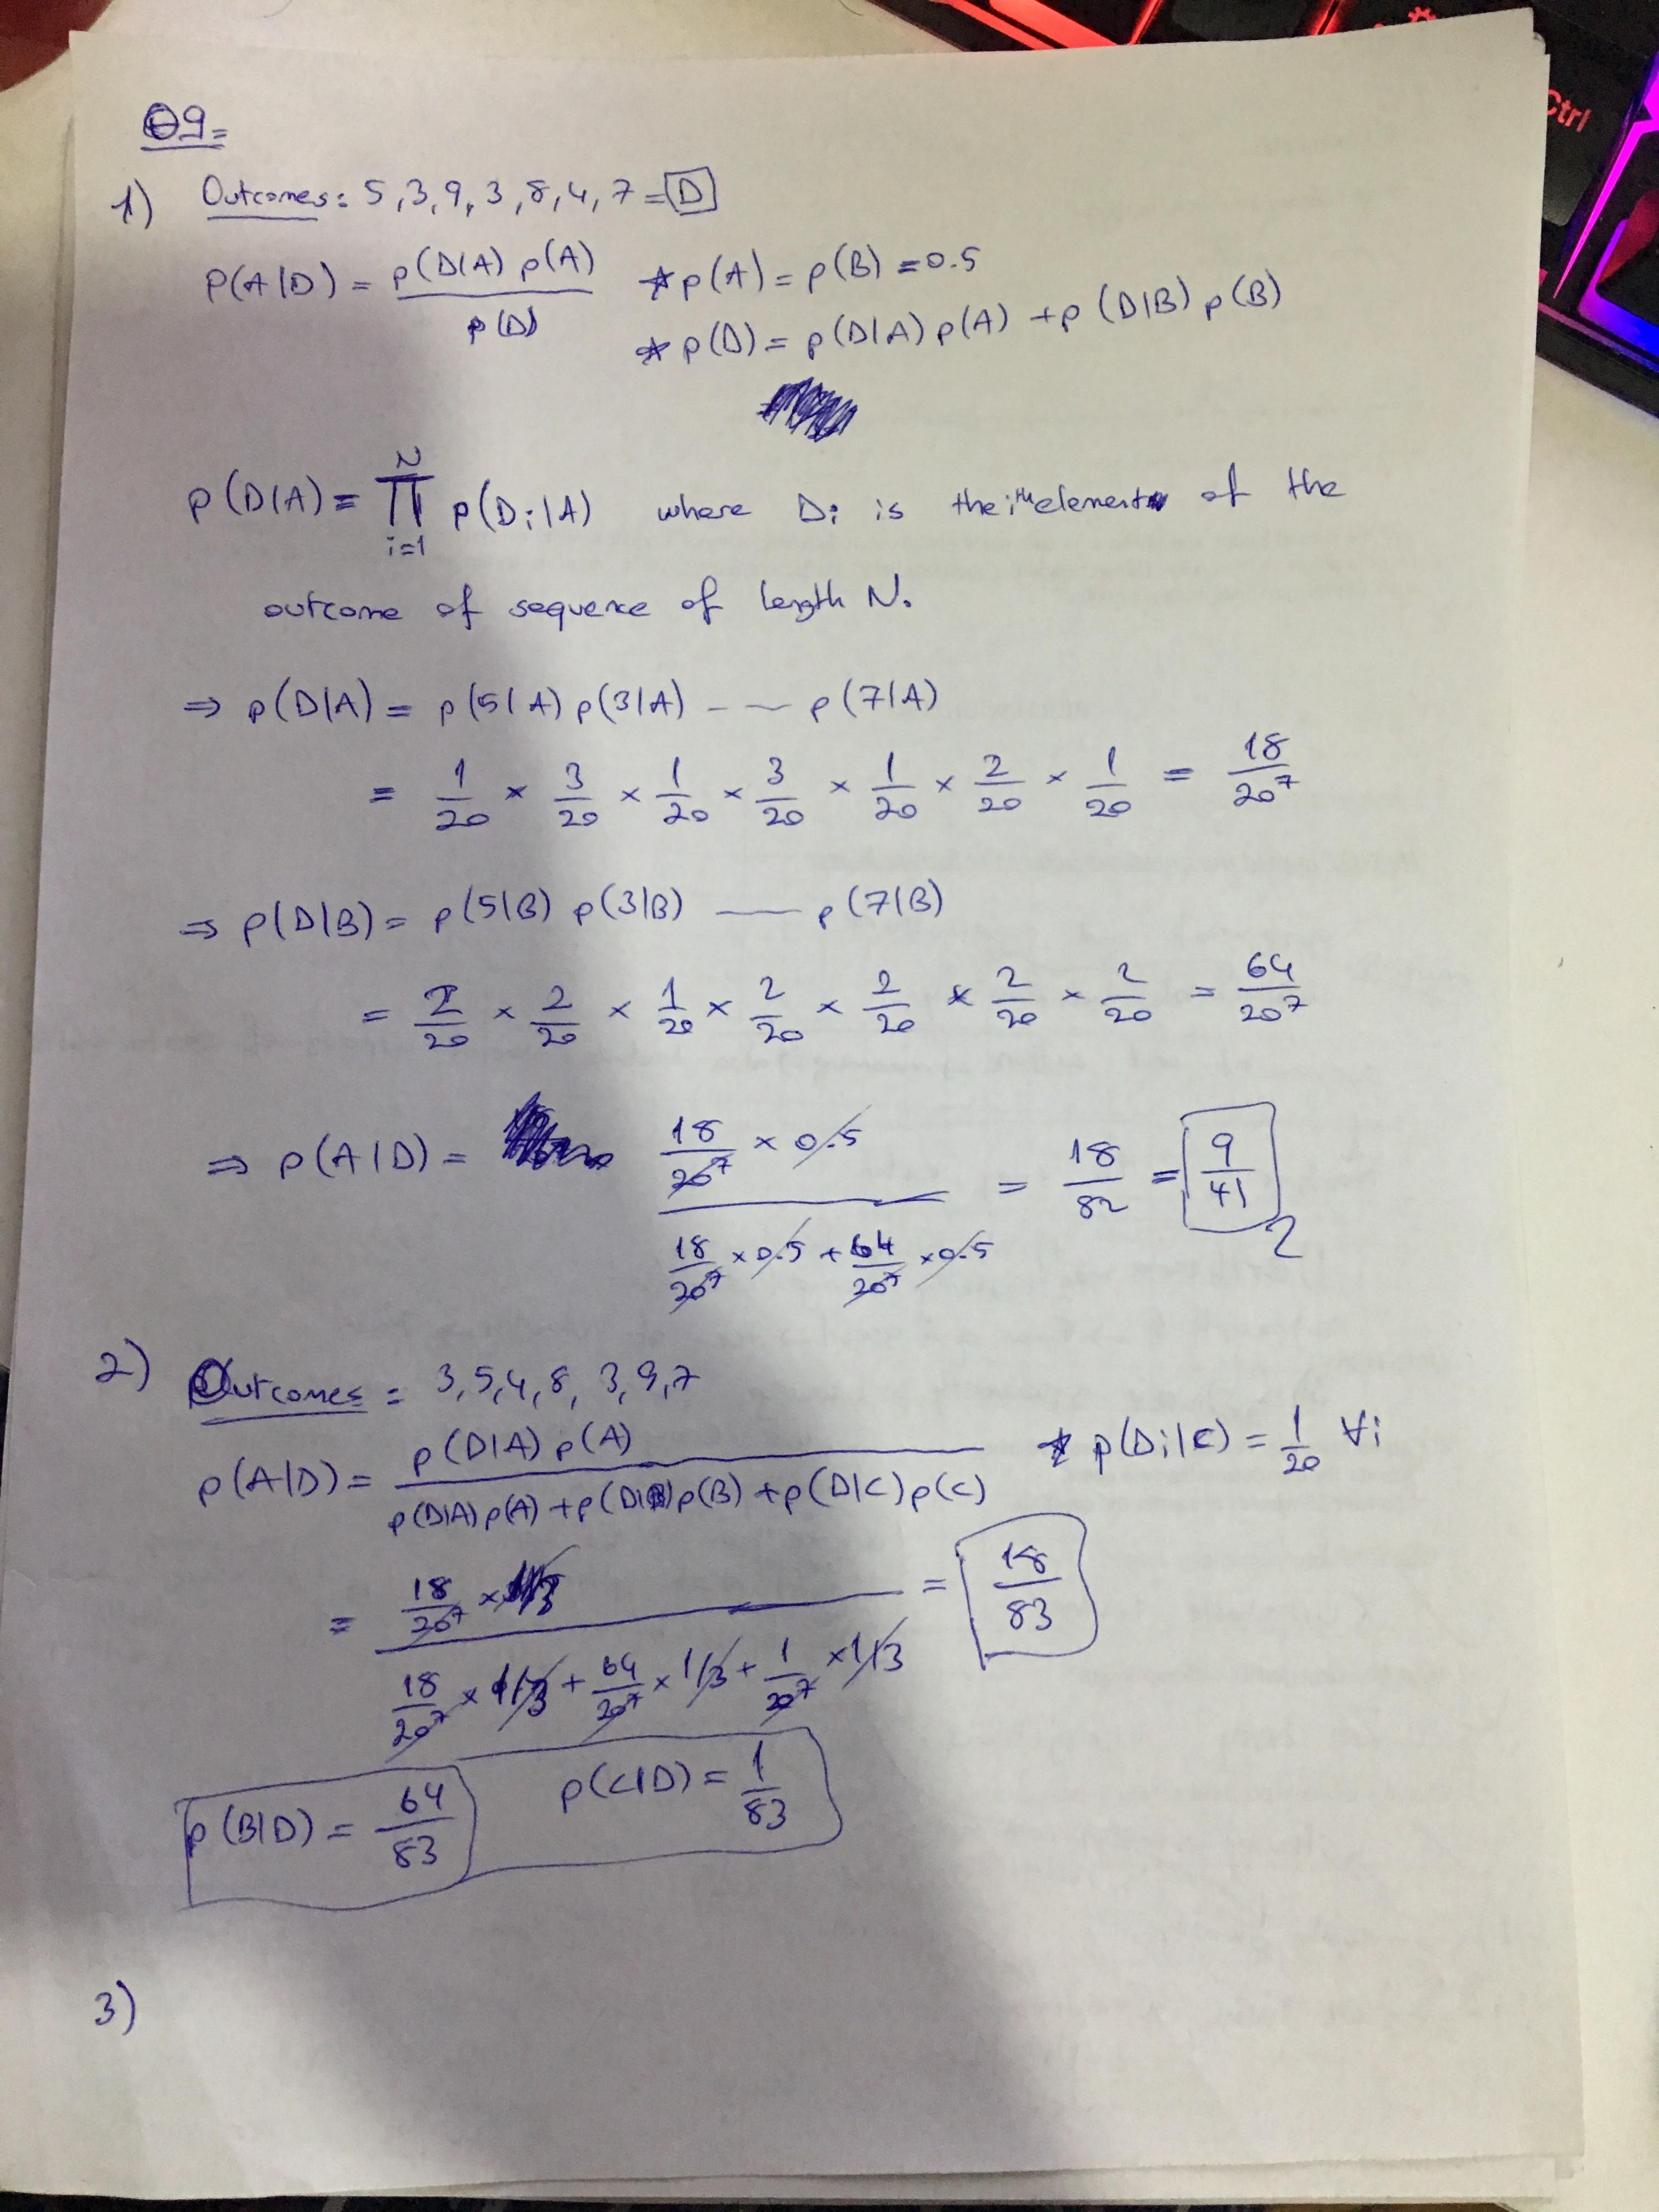 Q9=
1) Outcomes: 5,3,9,3,8,4,7 = D
P(A|D) = p(D|A) p(A) / p(D) * p(A) = p(B) = 0.5
* p(D) = p(D|A) p(A) + p(D|B) p(B)
p(D|A) = ∏_{i=1}^{N} p(Di|A) where Di is the ith element of the
outcome of sequence of length N.
⇒ p(D|A) = p(5|A) p(3|A) -- p(7|A)
= 1/20 × 3/20 × 1/20 × 3/20 × 1/20 × 2/20 × 1/20 = 18/20^7
⇒ p(D|B) = p(5|B) p(3|B) — p(7|B)
= 2/20 × 2/20 × 1/20 × 2/20 × 2/20 × 2/20 × 2/20 = 64/20^7
⇒ p(A|D) = (18/20^7 × 0.5) / (18/20^7 × 0.5 + 64/20^7 × 0.5) = 18/82 = 9/41
2) Outcomes = 3,5,4,8,3,9,7
p(A|D) = p(D|A) p(A) / (p(D|A) p(A) + p(D|B) p(B) + p(D|C) p(C)) * p(Di|C) = 1/20 ∀i
= (18/20^7 × 1/3) / (18/20^7 × 1/3 + 64/20^7 × 1/3 + 1/20^7 × 1/3) = 18/83
p(B|D) = 64/83 p(C|D) = 1/83
3)
Ctrl